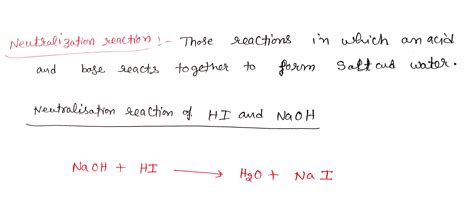 Neutralization reaction :- Those reactions in which an acid
and base reacts together to form Salt and water.
Neutralisation reaction of HI and NaOH
NaOH + HI ⟶ H₂O + NaI